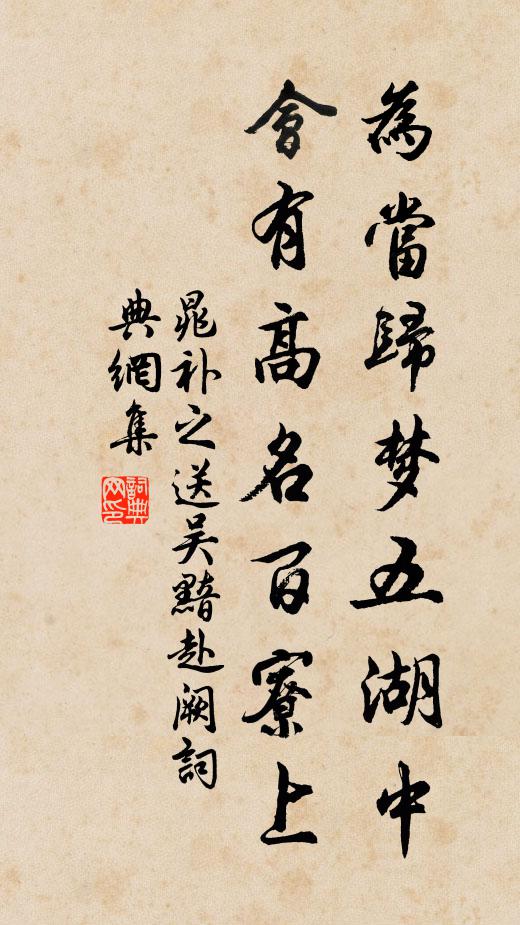 為當歸梦五湖中
會有高名百寮上
晁补之送吴黯赴阙詞
典網集
詞典
网印